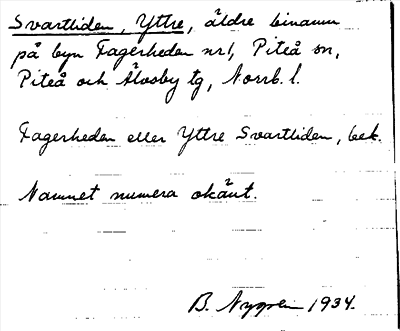 Svartliden, Yttre, äldre binamn
på byn Fagerheden nr 1, Piteå sn,
Piteå och Älvsby tg, Norrb. l.
Fagerheden eller Yttre Svartliden, bek.
Namnet numera okänt.
B. Nygren 1934.